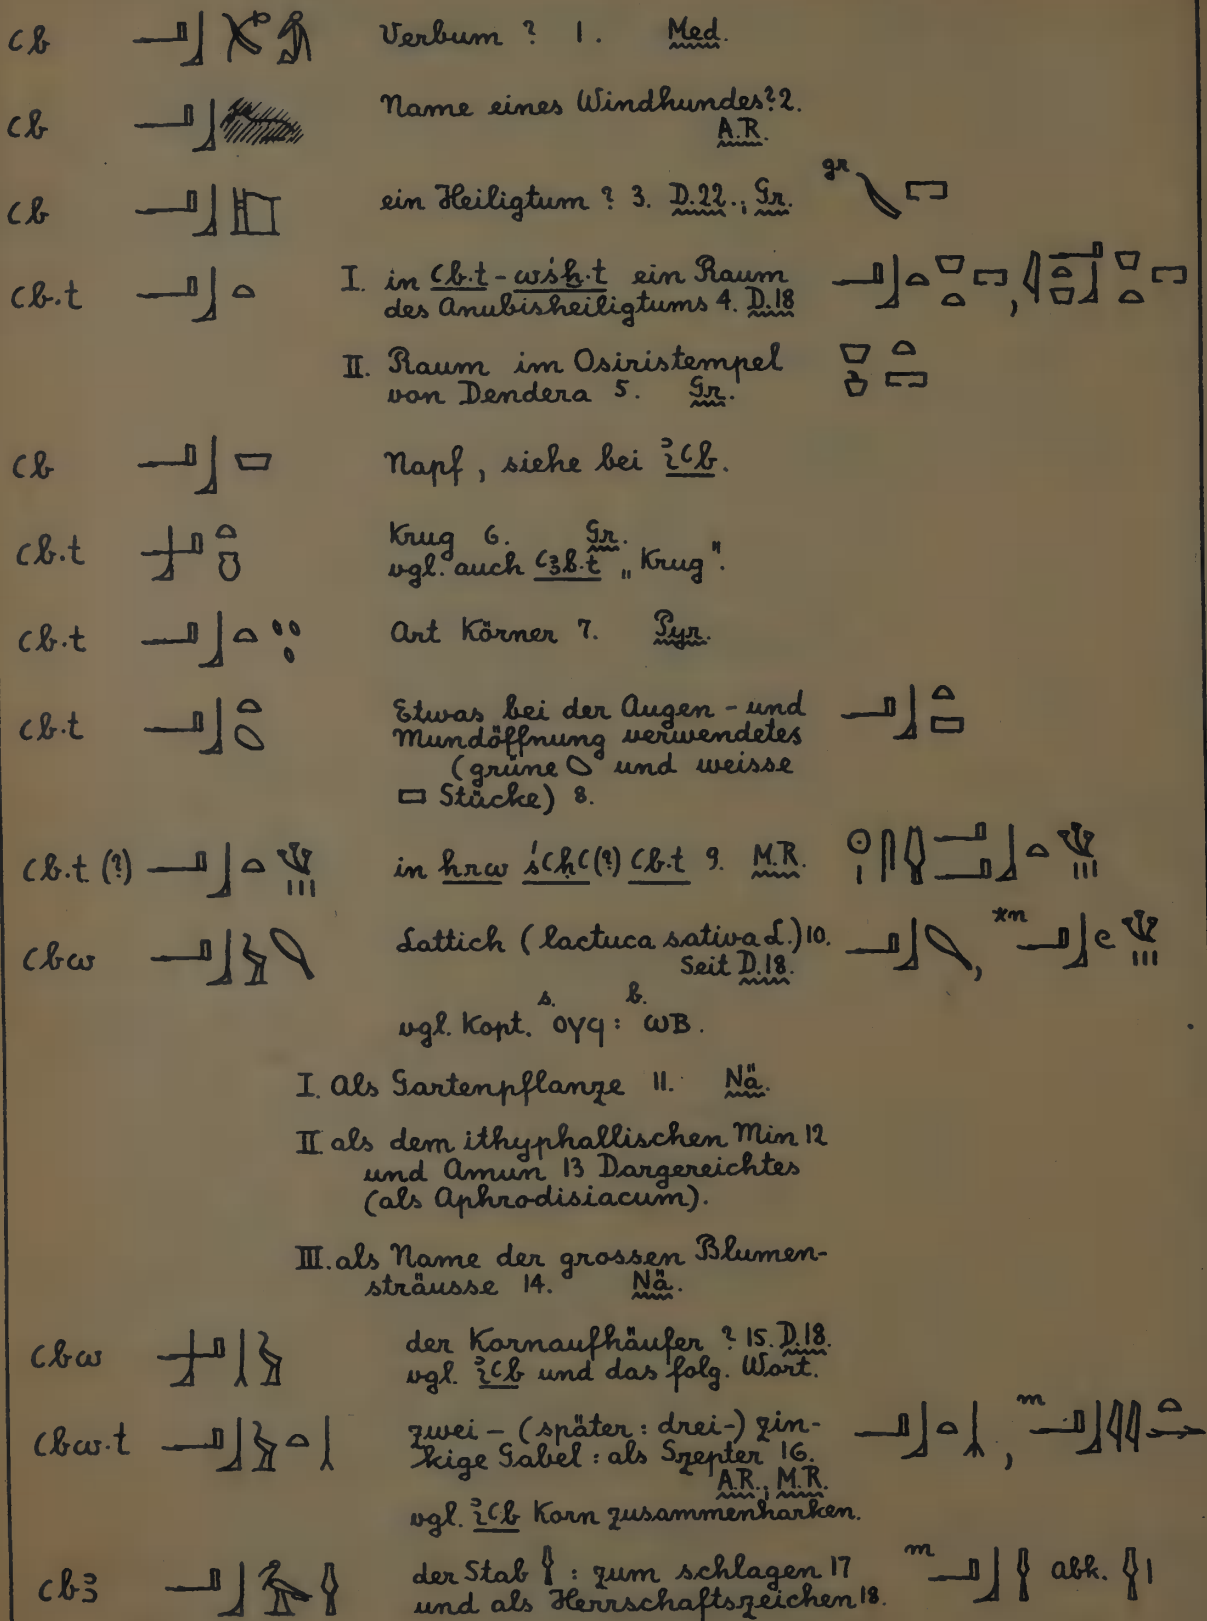 ꜥb Verbum ? 1. Med.
ꜥb Name eines Windhundes? 2.
A.R.
ꜥb ein Heiligtum ? 3. D.22.; Gr. gr
ꜥb.t I. in ꜥb.t - wśḫ.t ein Raum
des Anubisheiligtums 4. D.18
II. Raum im Osiristempel
von Dendera 5. Gr.
ꜥb Napf, siehe bei iꜥb.
ꜥb.t Krug 6. Gr.
vgl. auch ꜥꜣb.t „Krug".
ꜥb.t Art Körner 7. Pyr.
ꜥb.t Etwas bei der Augen- und
Mundöffnung verwendetes
(grüne und weisse
Stücke) 8.
ꜥb.t (?) in hrw śꜥḥꜥ(?) ꜥb.t 9. M.R.
ꜥbw Lattich (lactuca sativa L.) 10. *n
Seit D.18.
s. b.
vgl. Kopt. ⲟⲩϥ : ⲱⲃ.
I. Als Gartenpflanze 11. Nä.
II. als dem ithyphallischen Min 12
und Amun 13 Dargereichtes
(als Aphrodisiacum).
III. als Name der grossen Blumen-
sträusse 14. Nä.
ꜥbw der Kornaufhäufer ? 15. D.18.
vgl. iꜥb und das folg. Wort.
ꜥbw.t zwei- (später: drei-) zin- m
kige Gabel: als Szepter 16.
A.R.; M.R.
vgl. iꜥb Korn zusammenharken.
ꜥbꜣ der Stab : zum schlagen 17 m abk.
und als Herrschaftszeichen 18.